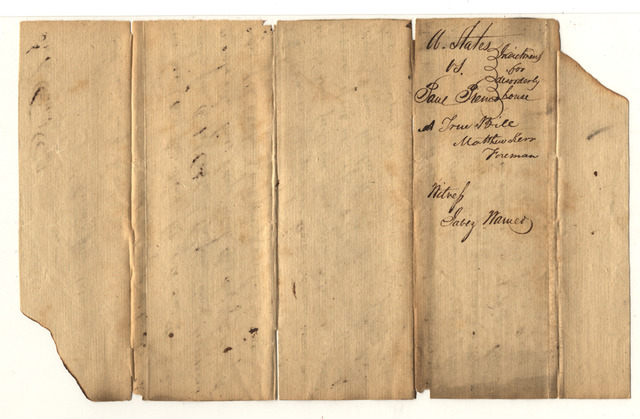 U. States
vs.
Paul
Indictment
for
disorderly
house
A True Bill
Matthew Kerr
Foreman
Witness
Jabez Warner